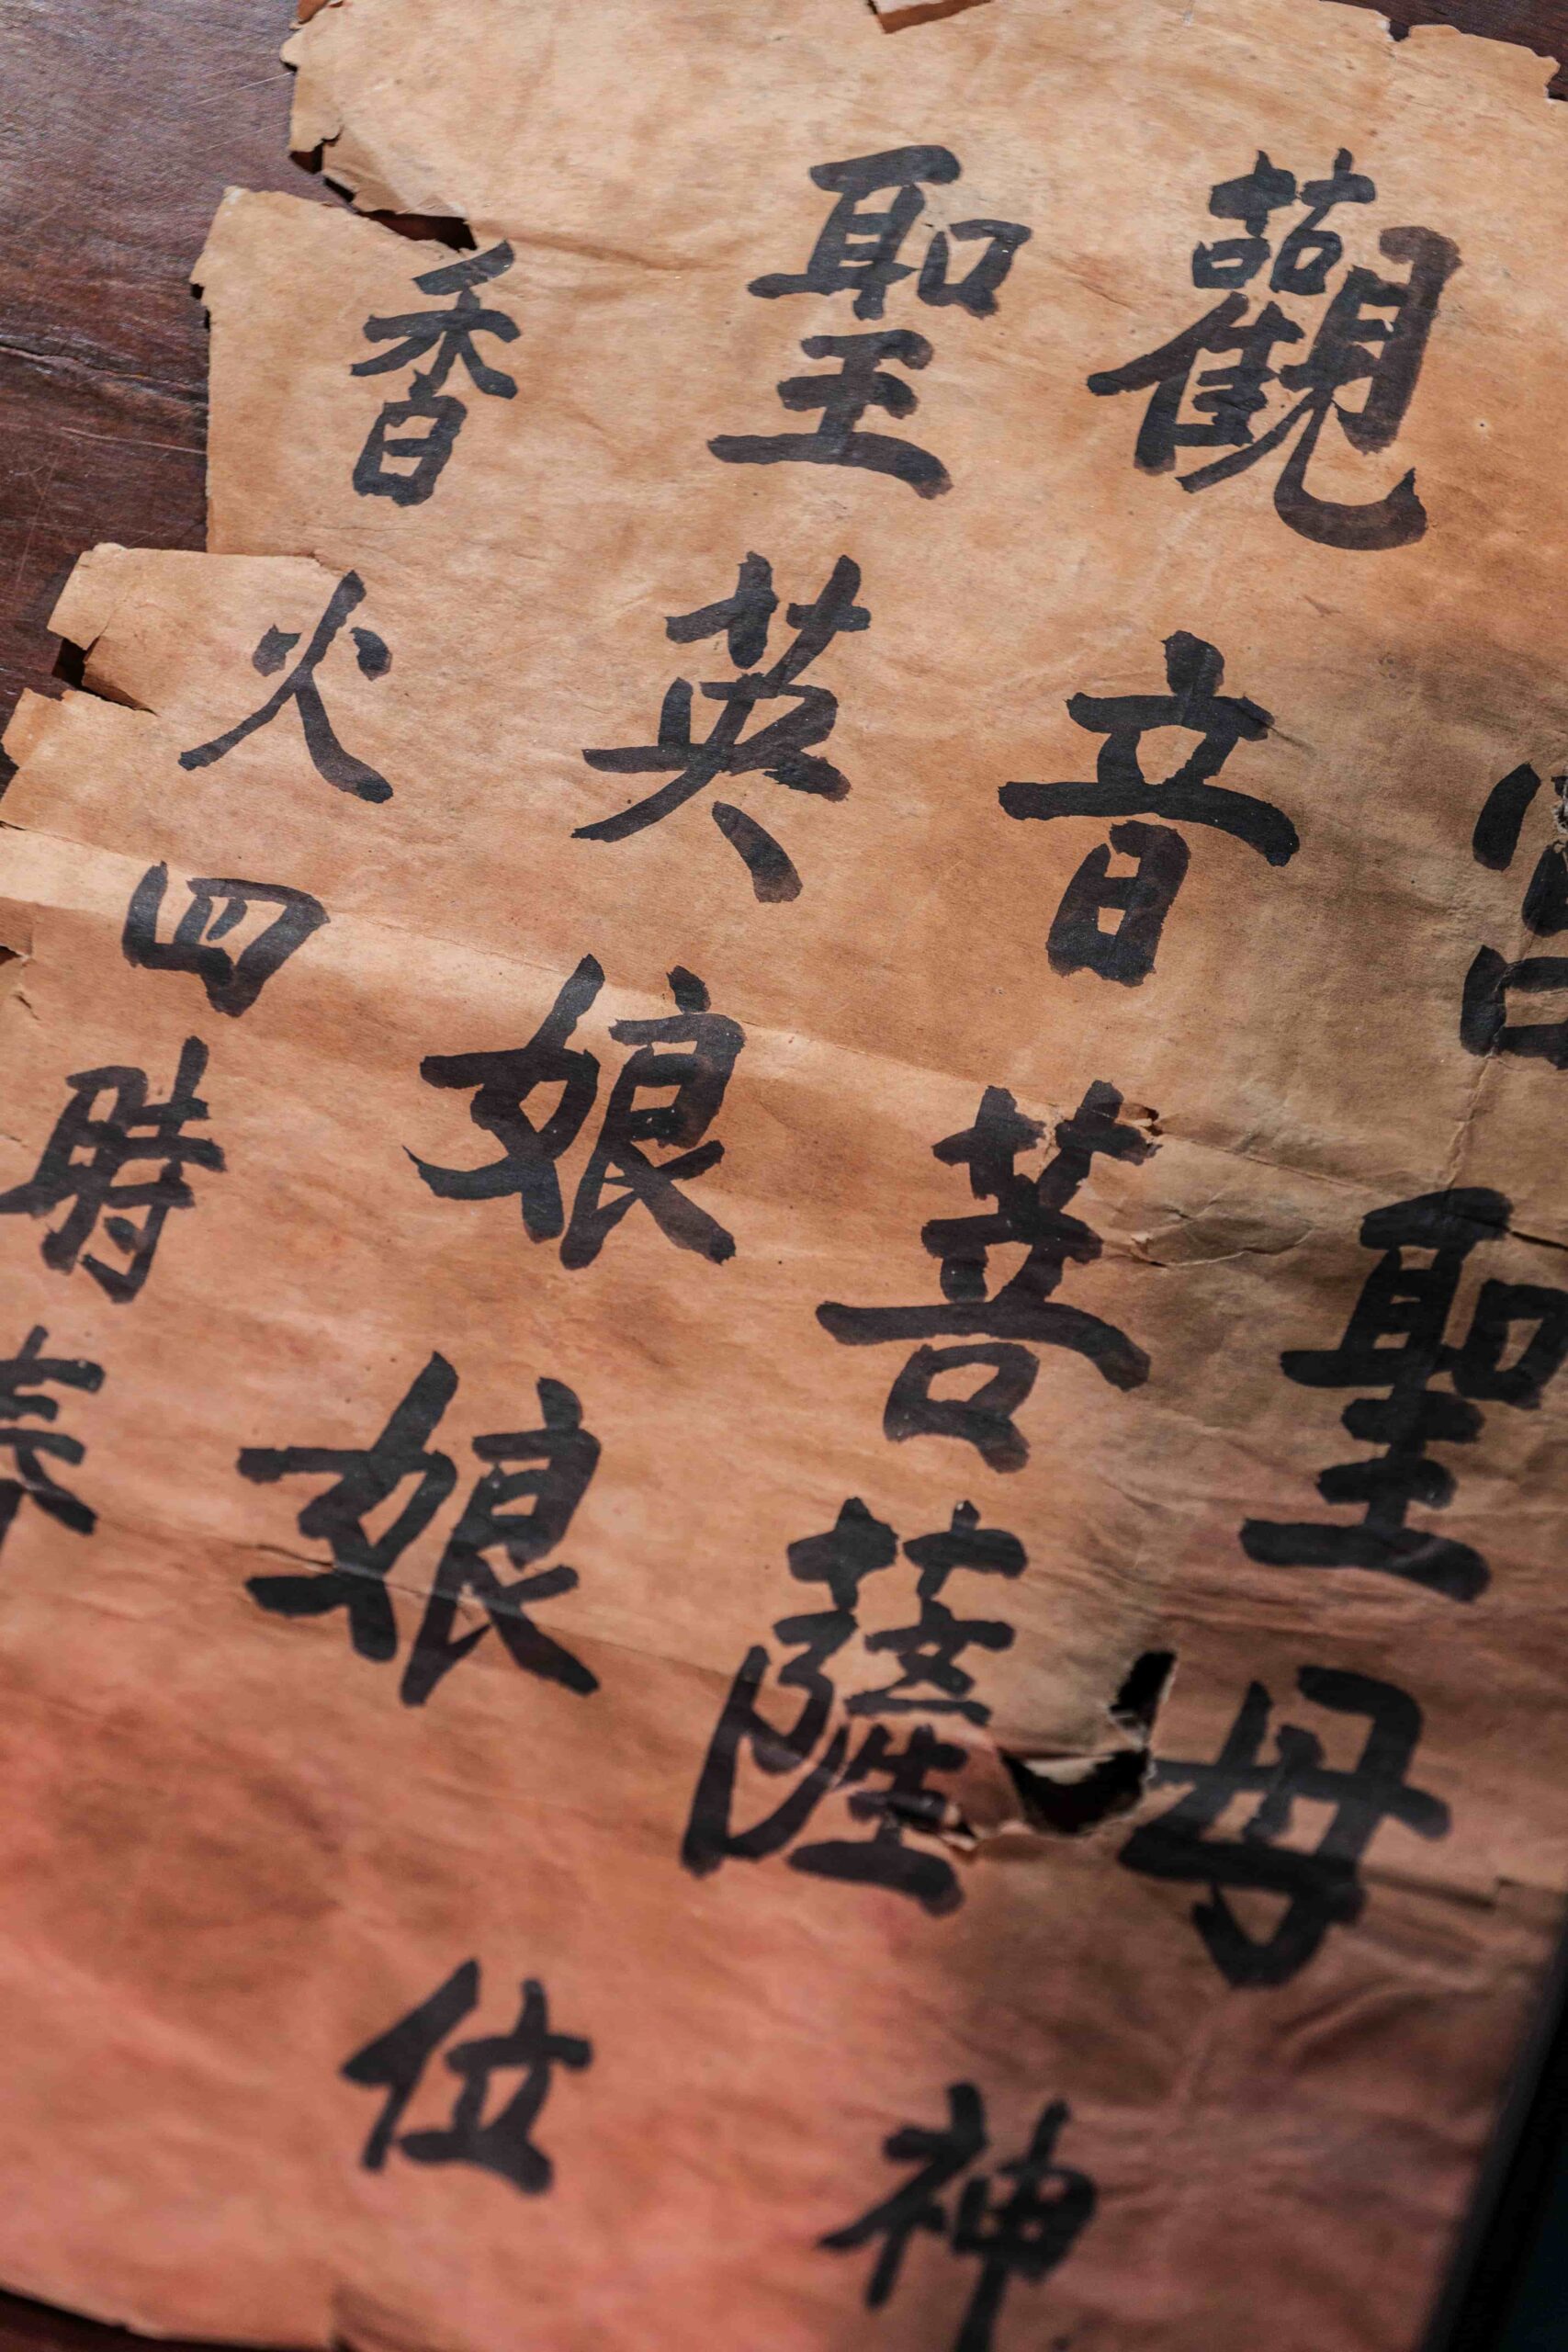 宮聖母
觀音菩薩
聖英娘娘
神位
香火四時春